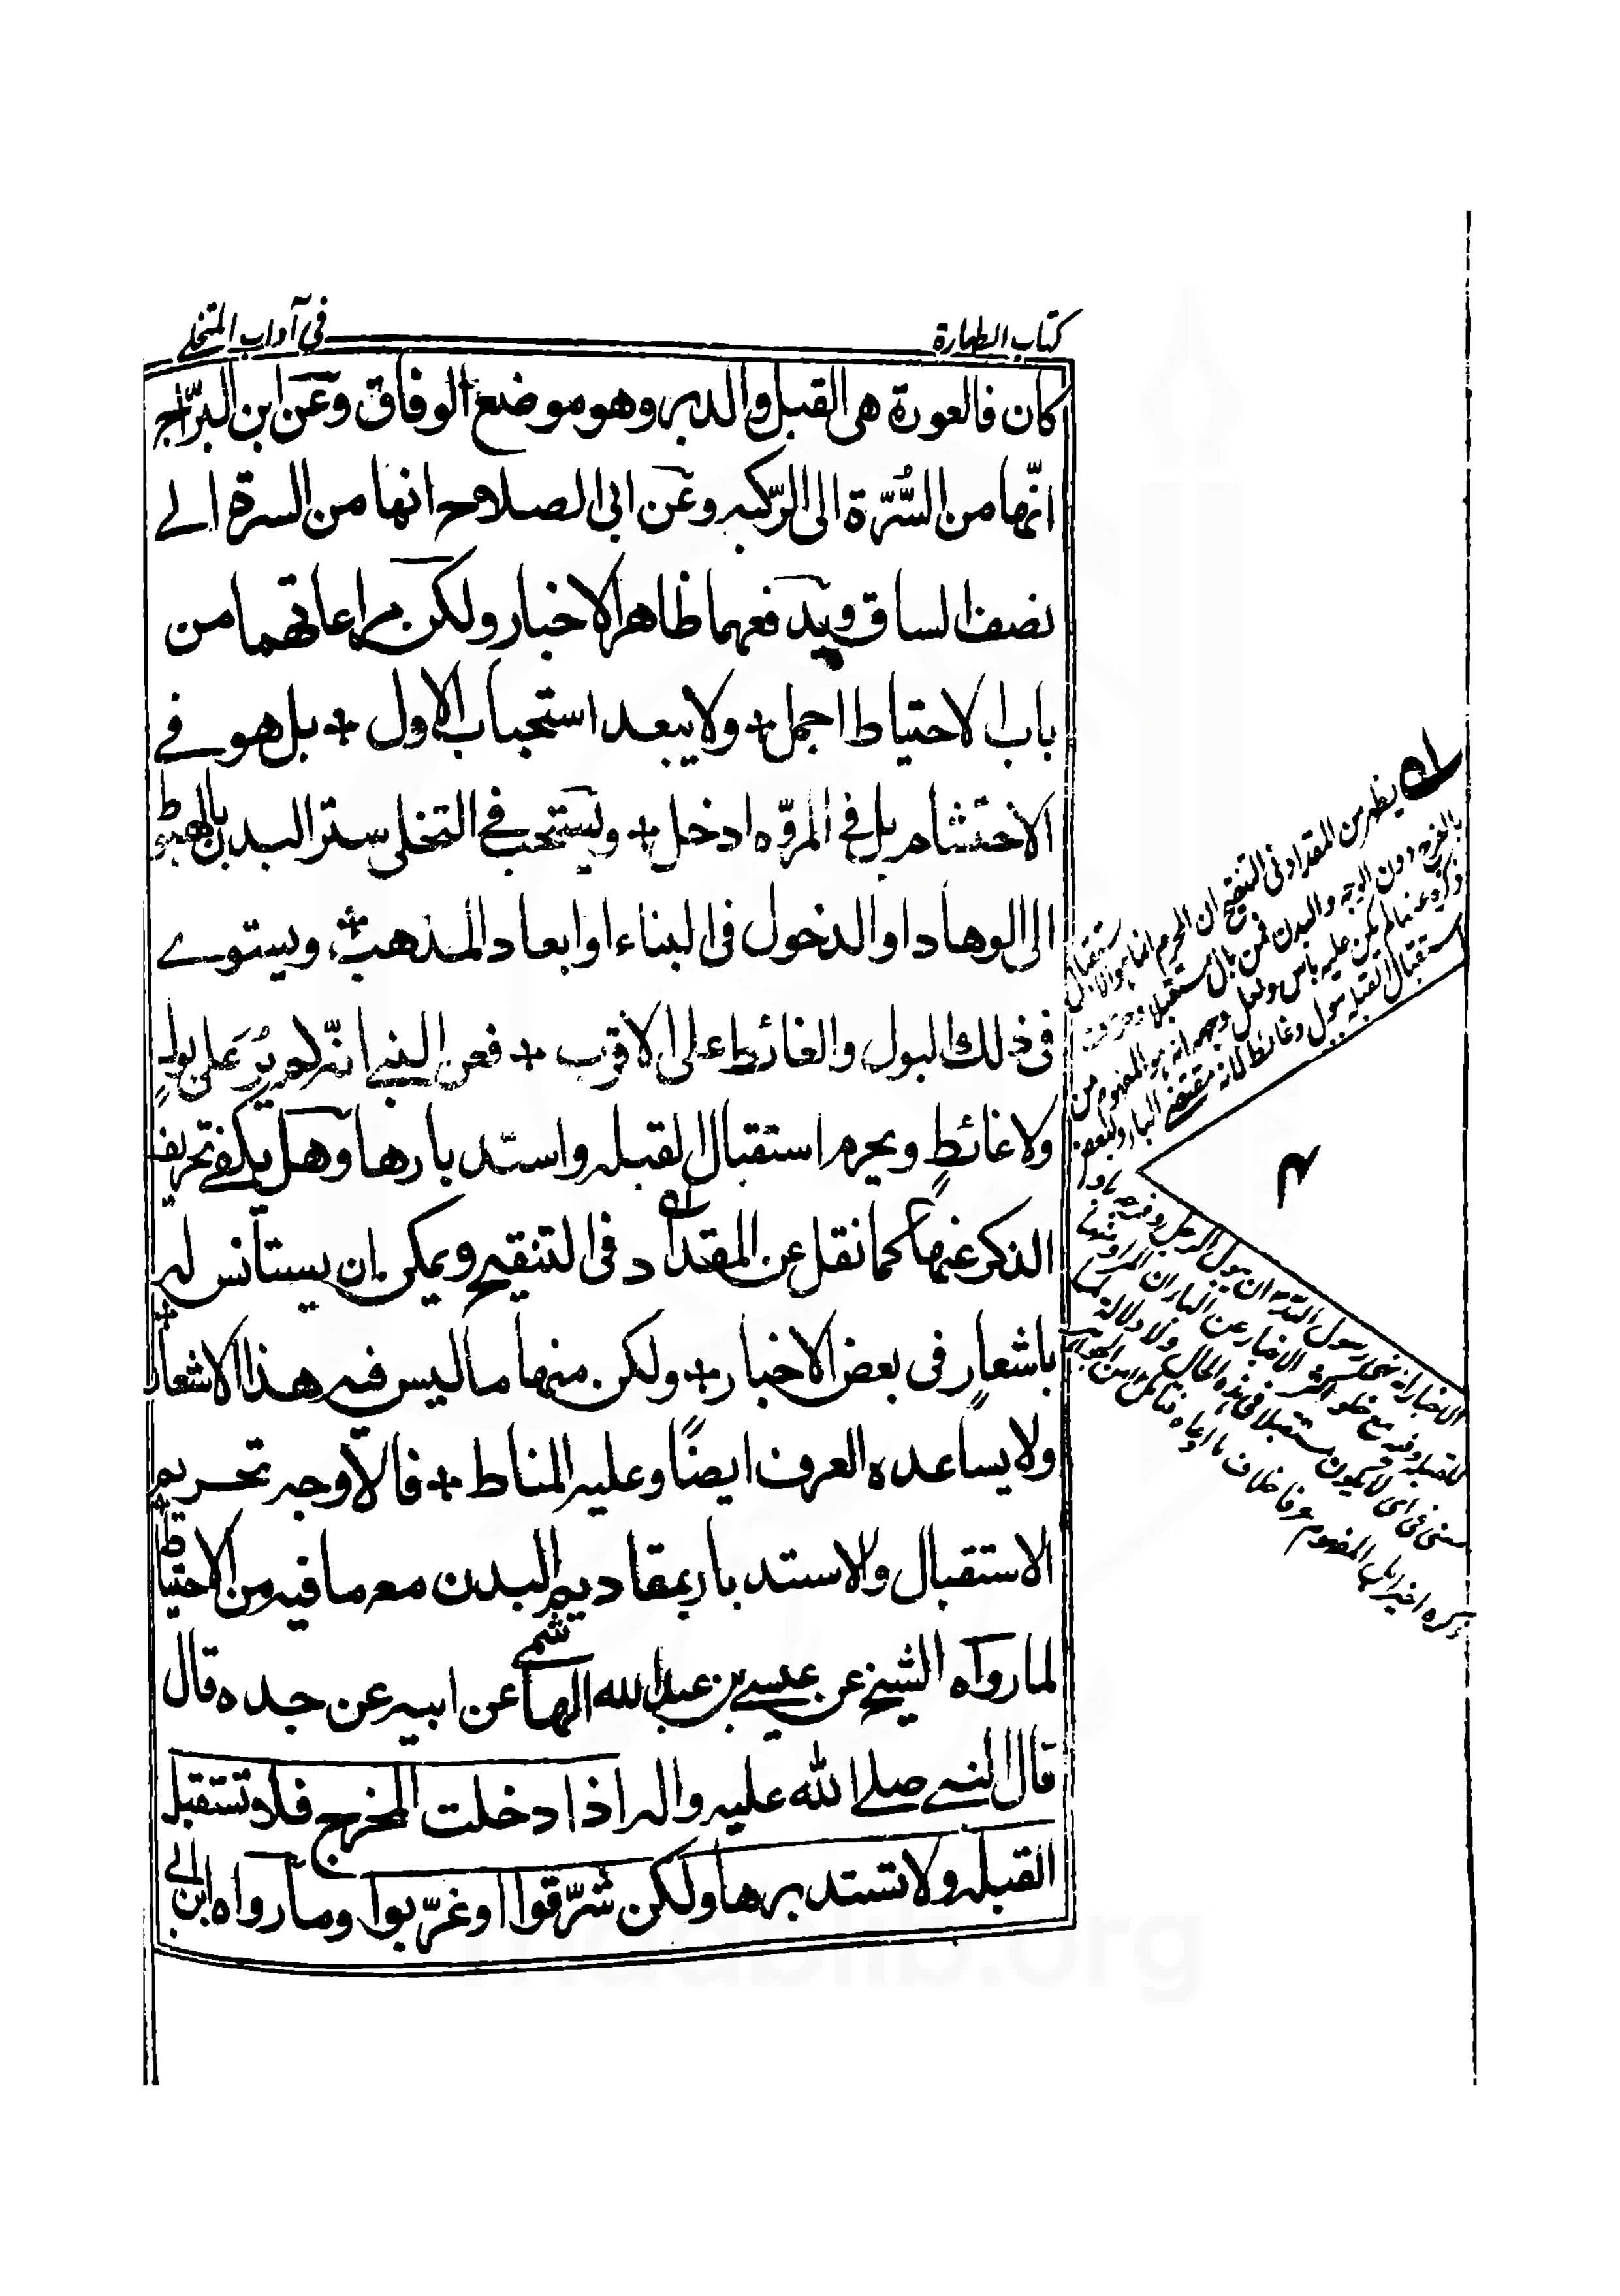 كتاب الطهارة
في آداب التخلي
كان فالعورة هي القبل والدبر وهو موضع الوفاق وعن ابن البرّاج
انّها من السُّرّة الى الرّكبه وعن ابي الصلاح انها من السرة الے
نصف الساق ويدفعهما ظاهر الاخبار ولكن مراعاتهما من
باب الاحتياط اجمل + ولا يبعد استحباب الاول + بل هو في
الاحتشام بل في المروّه ادخل + ويستحب في التخلي ستر البدن
الى الوهاد او الدخول في البناء او ابعاد المذهب + ويستوے
في ذلك البول والغائط على الاقرب + فعن النبي انّه لم يُرَ على بولٍ
ولا غائطٍ ويحرم استقبال القبله واستدبارها وهل يكفي تحريف
الذكر عنها كما نقل عن المقداد في التنقيح ويمكن ان يستأنس له
باشعارٍ في بعض الاخبار + ولكن منها ما ليس فيه هذا الاشعار +
ولا يساعده العرف ايضًا وعليه المناط + فالاوجه تحريم
الاستقبال والاستدبار بمقاديم البدن معه ما فيه من الاحتياط +
لما رواه الشيخ عن عيسے بن عبد الله الهاشمي عن ابيه عن جده قال
قال النبے صلے الله عليه واله اذا دخلت المخرج فلا تستقبل
القبله ولا تستدبرها ولكن شرّقوا او غرّبوا وما رواه ابن ابي
يظهر من المقداد في التنقيح ان المحرم انما هو الاستقبال
بالفرج دون الوجه والبدن فمن بال مستقبلا وحرف
ذكره عنها لم يكن عليه باس ولعل وجهه انه هو المفهوم من
استقبال القبله ببول وغائط لانه مقتضے الباء ولبعض
الاخبار انه نهى رسول الله ان يبول الرجل وفرجه باد
للقبله وفيه مع خلو اكثر الاخبار عن الباء ان المراد